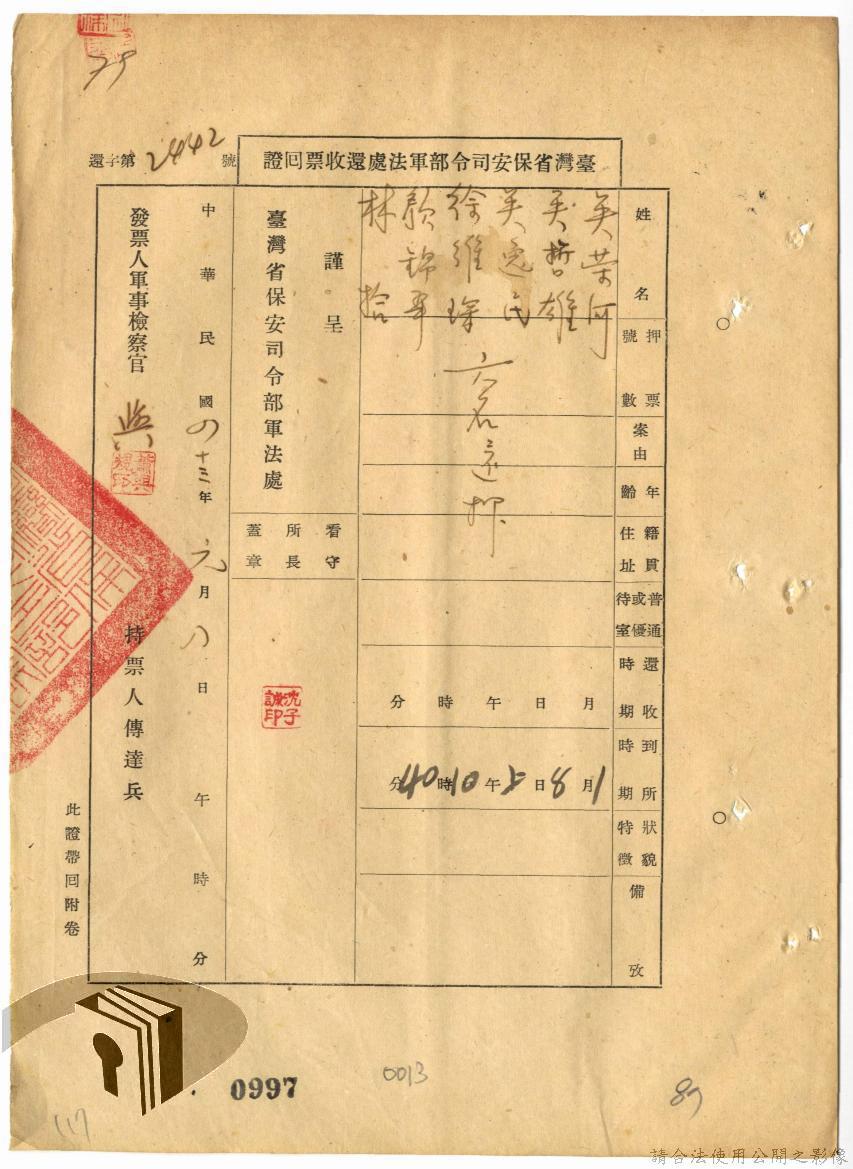 臺灣省保安司令部軍法處還收票回證
還字第2442號
姓名
吳榮河
吳哲雄
吳逸民
徐維琛
顏錦華
林拾
六名還押
押票號數
案由
年齡
籍貫住址
普通或優待室
還收時期
月 日 午 時 分
到所時期
1月8日上午10時40分
狀貌特徵
備攷
謹呈
臺灣省保安司令部軍法處
看守所長蓋章
沈子誠印
中華民國四十三年元月八日 午 時 分
發票人軍事檢察官
持票人傳達兵
此證帶回附卷
0997
0013
89
117
請合法使用公開之影像